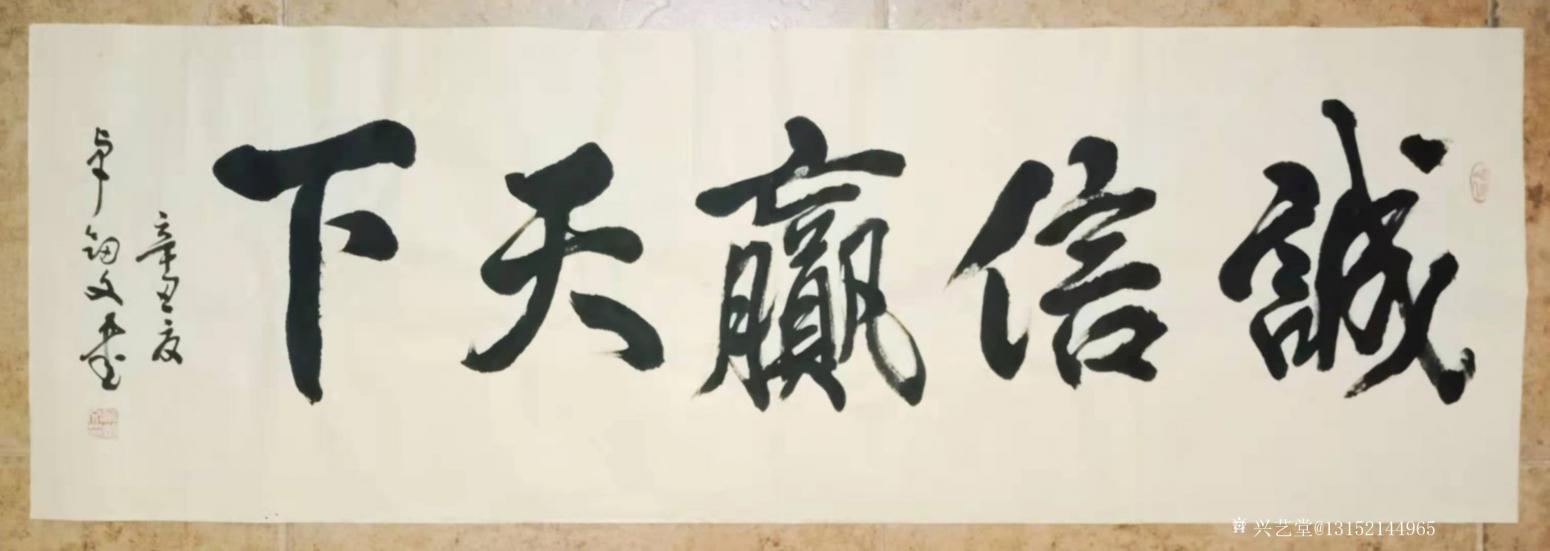 誠信贏天下
辛丑夏
卓鈿文書
兴艺堂@13152144965